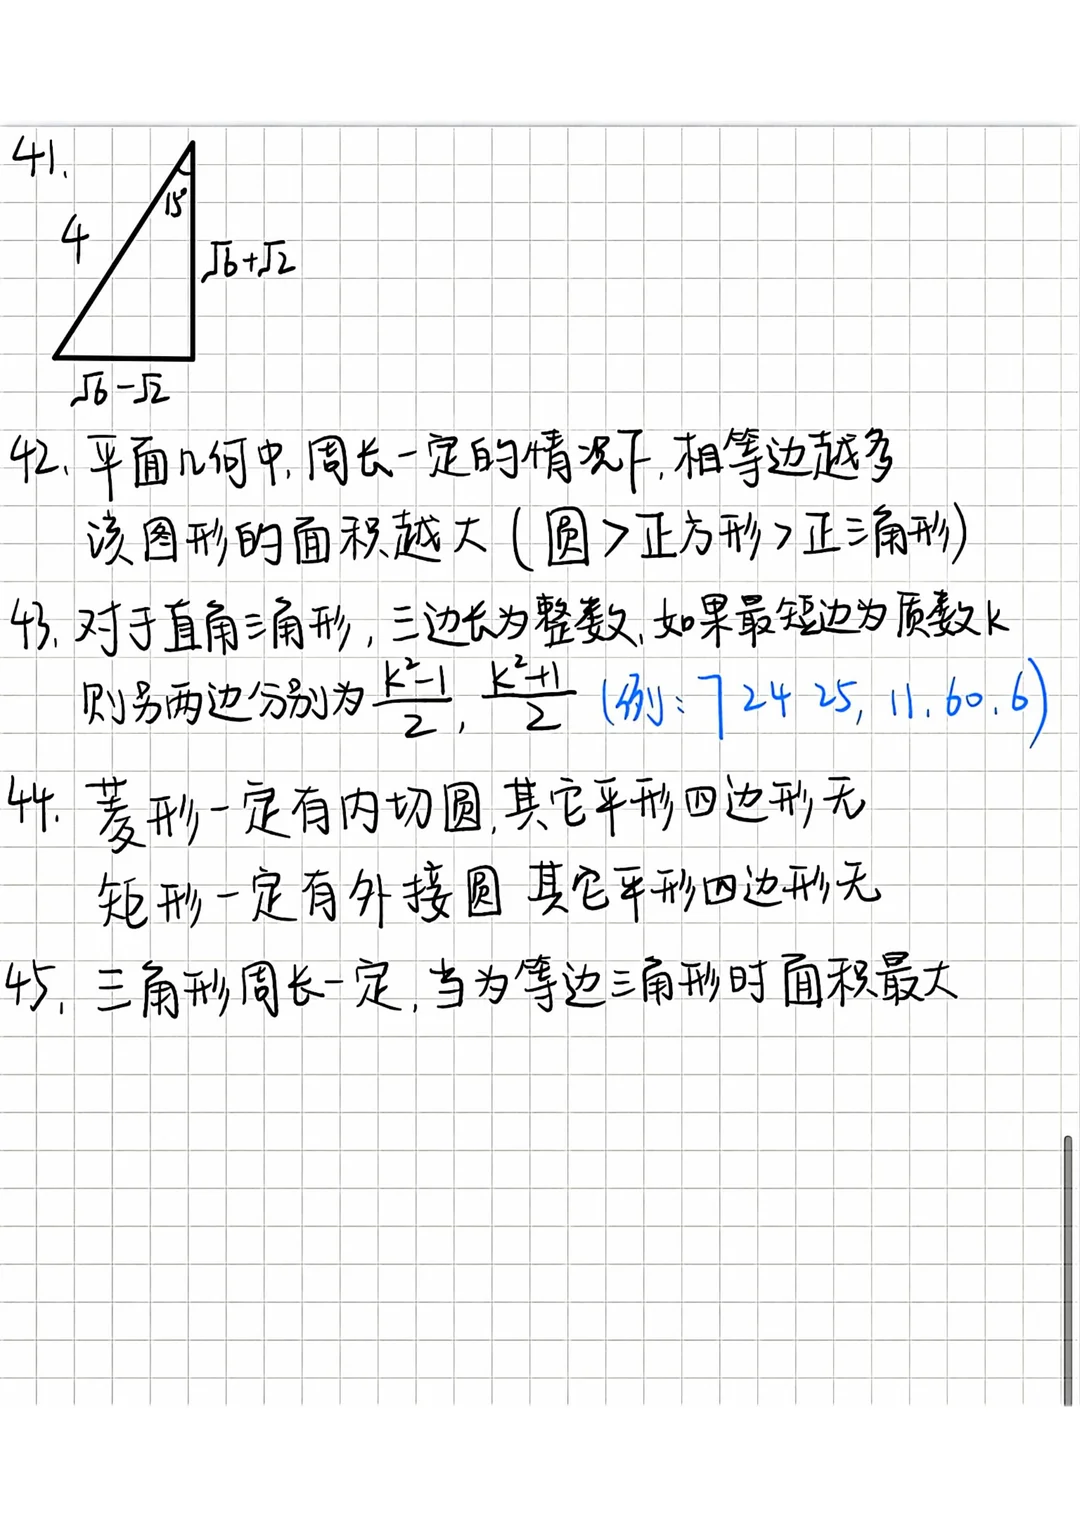 41.
15°
4
√6+√2
√6-√2
42. 平面几何中, 周长一定的情况下, 相等边越多
该图形的面积越大 (圆>正方形>正三角形)
43. 对于直角三角形, 三边长为整数, 如果最短边为质数k
则另两边分别为 (k²-1)/2, (k²+1)/2 (例: 7 24 25, 11. 60. 6)
44. 菱形一定有内切圆, 其它平形四边形无
矩形一定有外接圆 其它平形四边形无
45. 三角形周长一定, 当为等边三角形时面积最大